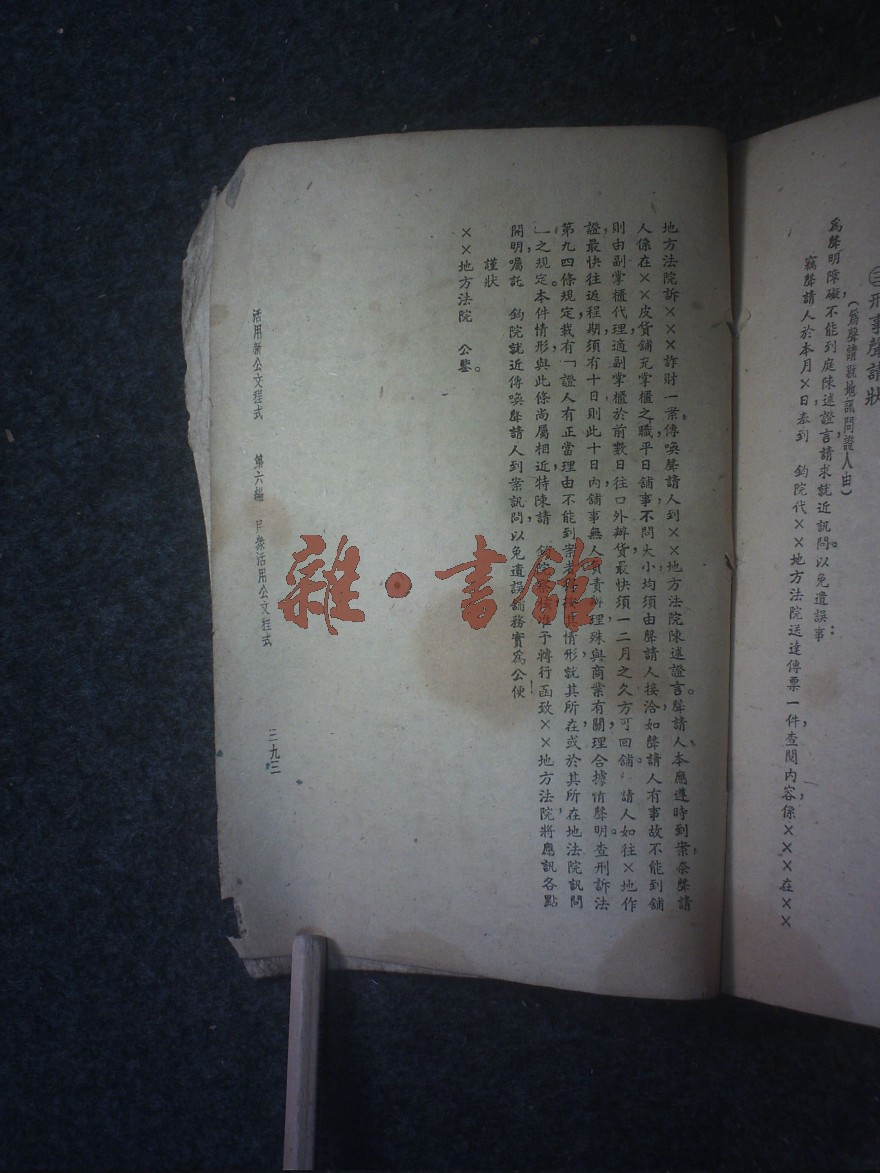 ㊂刑事聲請狀
（爲聲請就地訊問證人由）
爲聲明障礙，不能到庭陳述證言，請求就近訊問。以免遺誤事：
竊聲請人於本月×日奉到 鈞院代××地方法院送達傳票一件，查閱內容，係×××在××
地方法院訴×××詐財一案，傳喚聲請人到××地方法院陳述證言。聲請人本應遵時到案，奈聲請
人係在××皮貨鋪充掌櫃之職，平日舖事，不問大小，均須由聲請人接洽，如聲請人有事故不能到舖
則由副掌櫃代理，適副掌櫃於前數日往口外辦貨，最快須一二月之久，方可回舖。 請人如往×地作
證，最快往返程期，須有十日，則此十日內舖事無人負責 理，殊與商業有關，理合據情聲明。查刑訴法
第九四條規定，載有「證人有正當理由不能到案者， 情形，就其所在或於其所在地法院訊問
」之規定。本件情形，與此條尚屬相近，特陳請 鈞院 准予轉行函致××地方法院，將應訊各點
開明，囑託 鈞院就近傳喚聲請人到案訊問，以免遺誤舖務，實爲公便！
謹狀
××地方法院 公鑒。
活用新公文程式 第六編 民衆活用公文程式 三九三
雜·書館